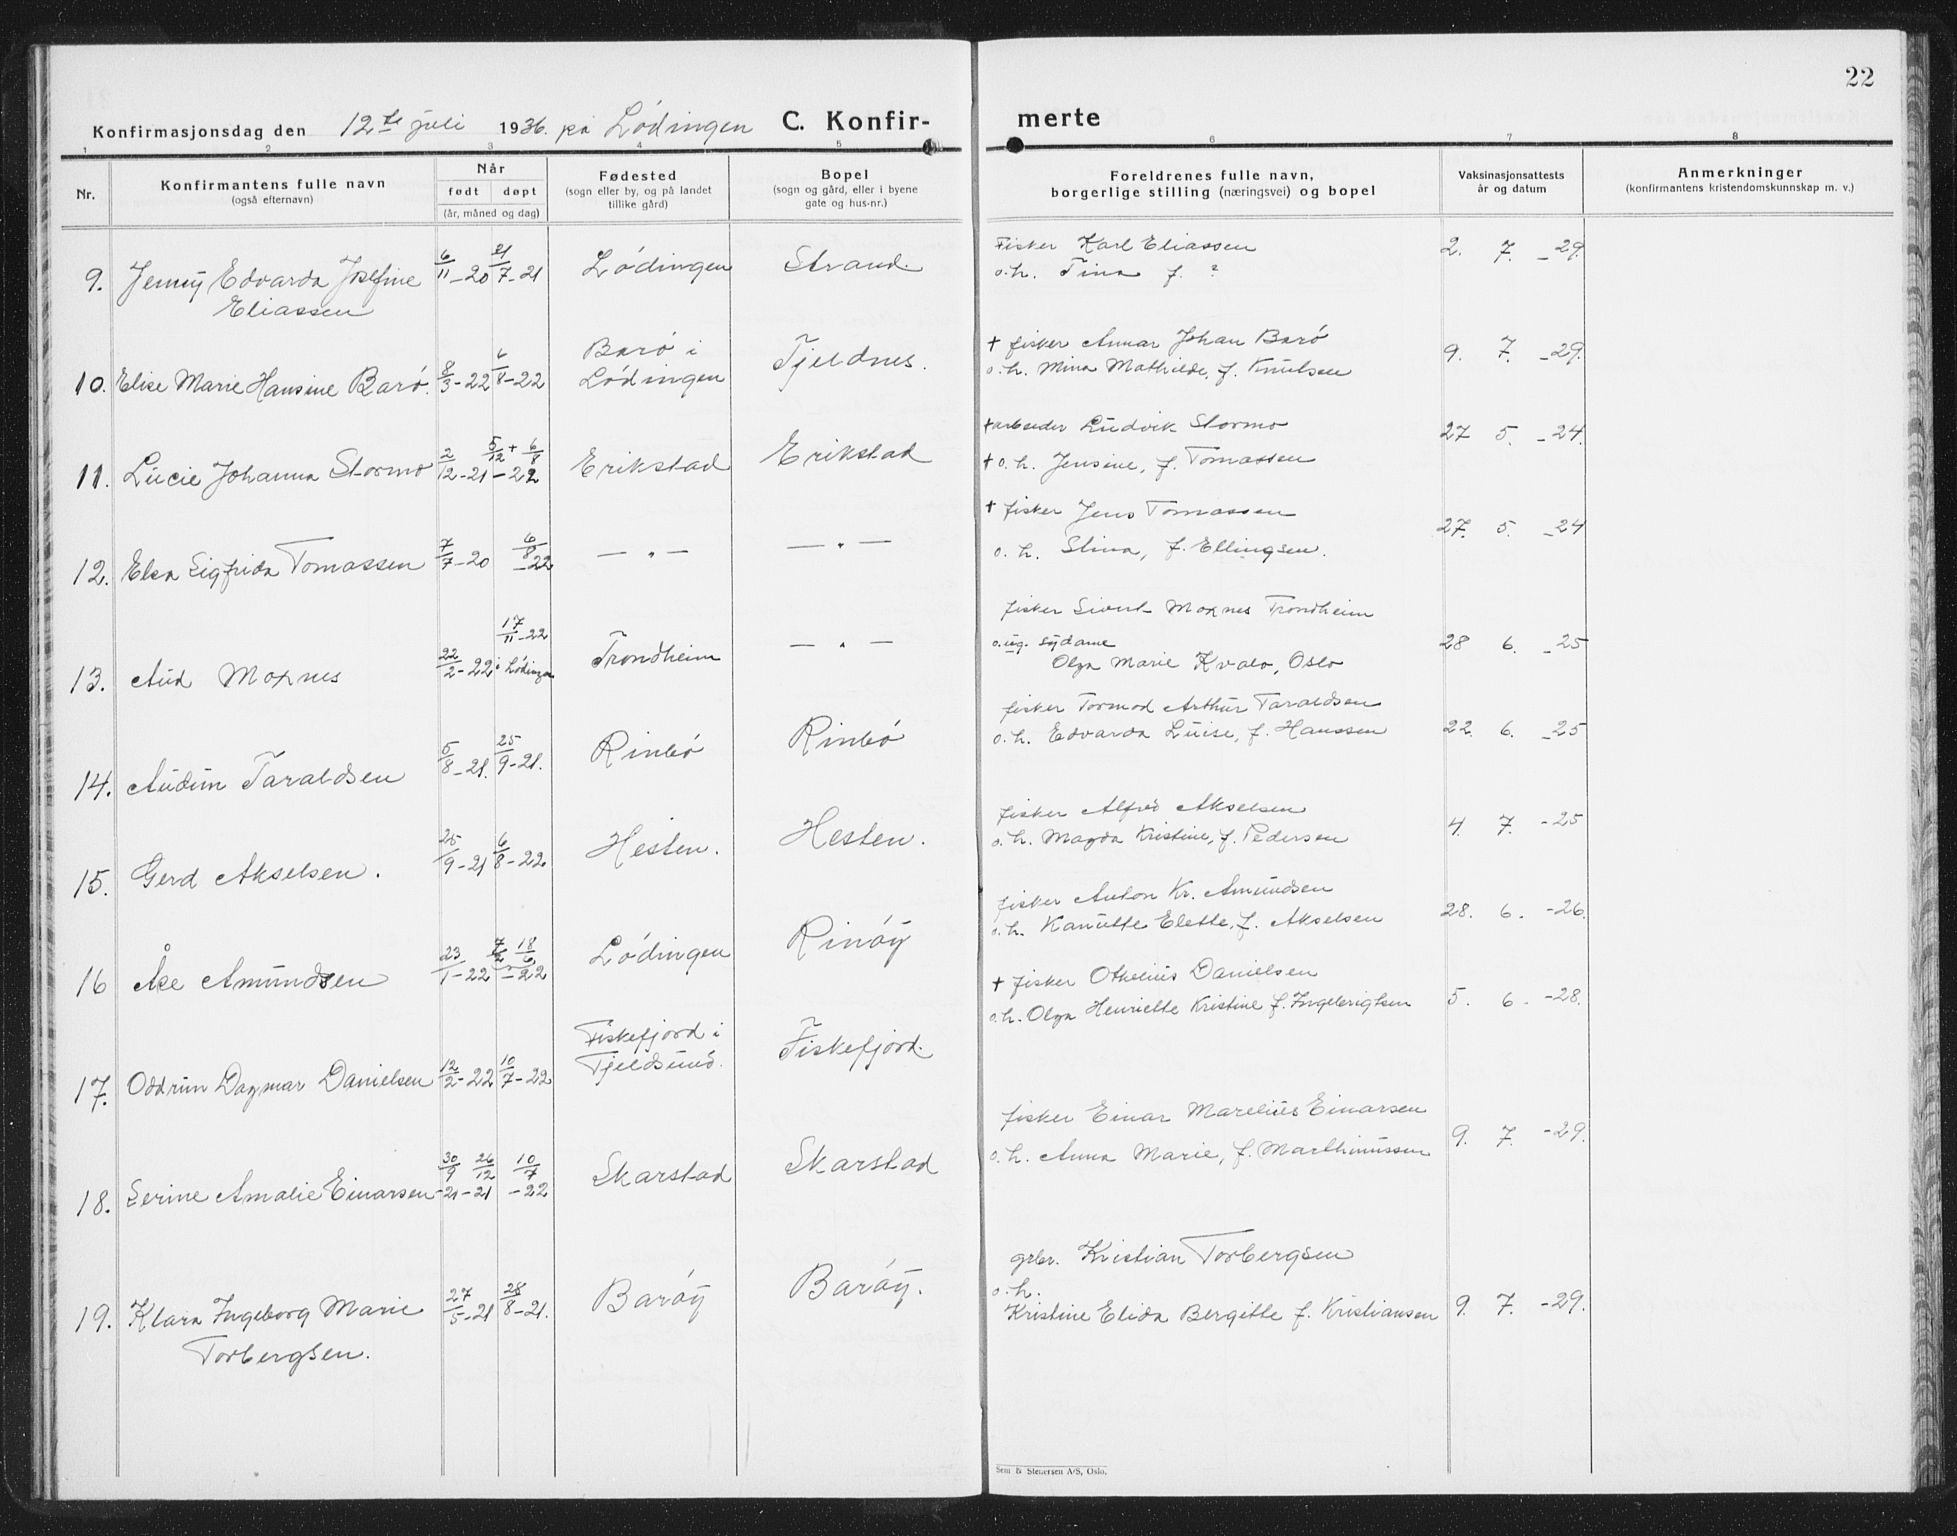 22
Konfirmasjonsdag den 12te juli 1936. på Lødingen C. Konfir-merte
1 2 3 4 5 6 7 8
Nr.
Konfirmantens fulle navn
(også efternavn)
Når
født døpt
(år, måned og dag)
Fødested
(sogn eller by, og på landet
tillike gård)
Bopel
(sogn og gård, eller i byene
gate og hus-nr.)
Foreldrenes fulle navn,
borgerlige stilling (næringsvei) og bopel
Vaksinasjonsattests
år og datum
Anmerkninger
(konfirmantens kristendomskunnskap m. v.)
9. Jenny Edvarda Josefine 6/11-20 21/7-21 Lødingen Strand. Fisker Karl Eliassen 2. 7. -29.
Eliassen o. h. Tina f. ?
10. Elise Marie Hansine Barø. 8/3-22 6/8-22 Barø i Tjeldnes. + fisker Annar Johan Barø 9. 7. -29.
Lødingen o. h. Mina Mathilde, f. Knutsen
11. Lucie Johanna Stormo 2/12-21 5/12 + 6/8-22 Erikstad Erikstad + arbeider Ludvik Stormo 27 5. -24.
+ o. h. Jensine, f. Tomassen
12. Elsa Sigfrida Tomassen 7/7-20 6/8-22 — " — — " — + fisker Jens Tomassen 27. 5. -24
o. h. Stina, f. Ellingsen.
13. Aud Moxnes 22/2-22 17/11-22 i Lødingen Trondheim — " — fisker Sivert Moxnes Trondheim 28 6. -25
o. ug. sydame
Olga Marie Kvalo, Oslo
14. Audun Taraldsen 5/8-21. 25/9-21. Rinbø Rinbø fisker Tormod Arthur Taraldsen 22. 6. -25
o. h. Edvarda Luise, f. Hanssen
15. Gerd Akselsen. 25/9-21 6/8-22 Hesten. Hesten. fisker Alfred Akselsen 4. 7. -25
o. h. Magda Kristine, f. Pedersen
16 Åse Amundsen 23/1-22 7/2 18/6-22 Lødingen Rinøy fisker Anton Kr. Amundsen 28. 6. -26.
o. h. Kanutte Elette, f. Akselsen
17. Oddrun Dagmar Danielsen 12/2-22 10/7-22 Fiskefjord i Fiskefjord. + fisker Othelius Danielsen 5. 6. -28.
Tjeldsund. o. h. Olga Henriette Kristine f. Ingebrigtsen
18. Serine Amalie Einarsen 30/9-21 26/12-21 10/7-22 Skarstad Skarstad fisker Einar Marelius Einarsen 9. 7. -29.
o. h. Anna Marie, f. Marthinussen
19. Klara Ingeborg Marie 27/5-21 28/8-21. Barøy Barøy. grbr. Kristian Torbergsen 9. 7. -29.
Torbergsen. o. h.
Kristine Elida Bergitte f. Kristiansen
Sem & Stenersen A/S, Oslo.